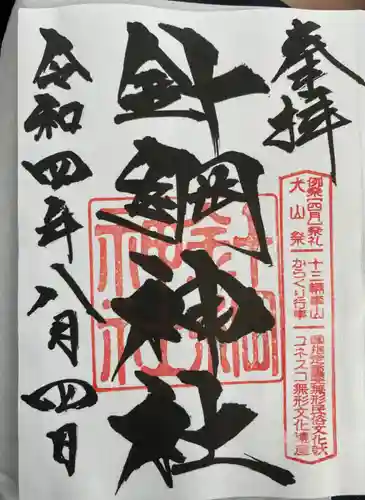 奉拝
例祭(四月)祭礼
犬山祭
十三輌車山
からくり行事
国指定重要無形民俗文化財
ユネスコ無形文化遺産
針綱神社
針綱
神社
令和四年八月四日